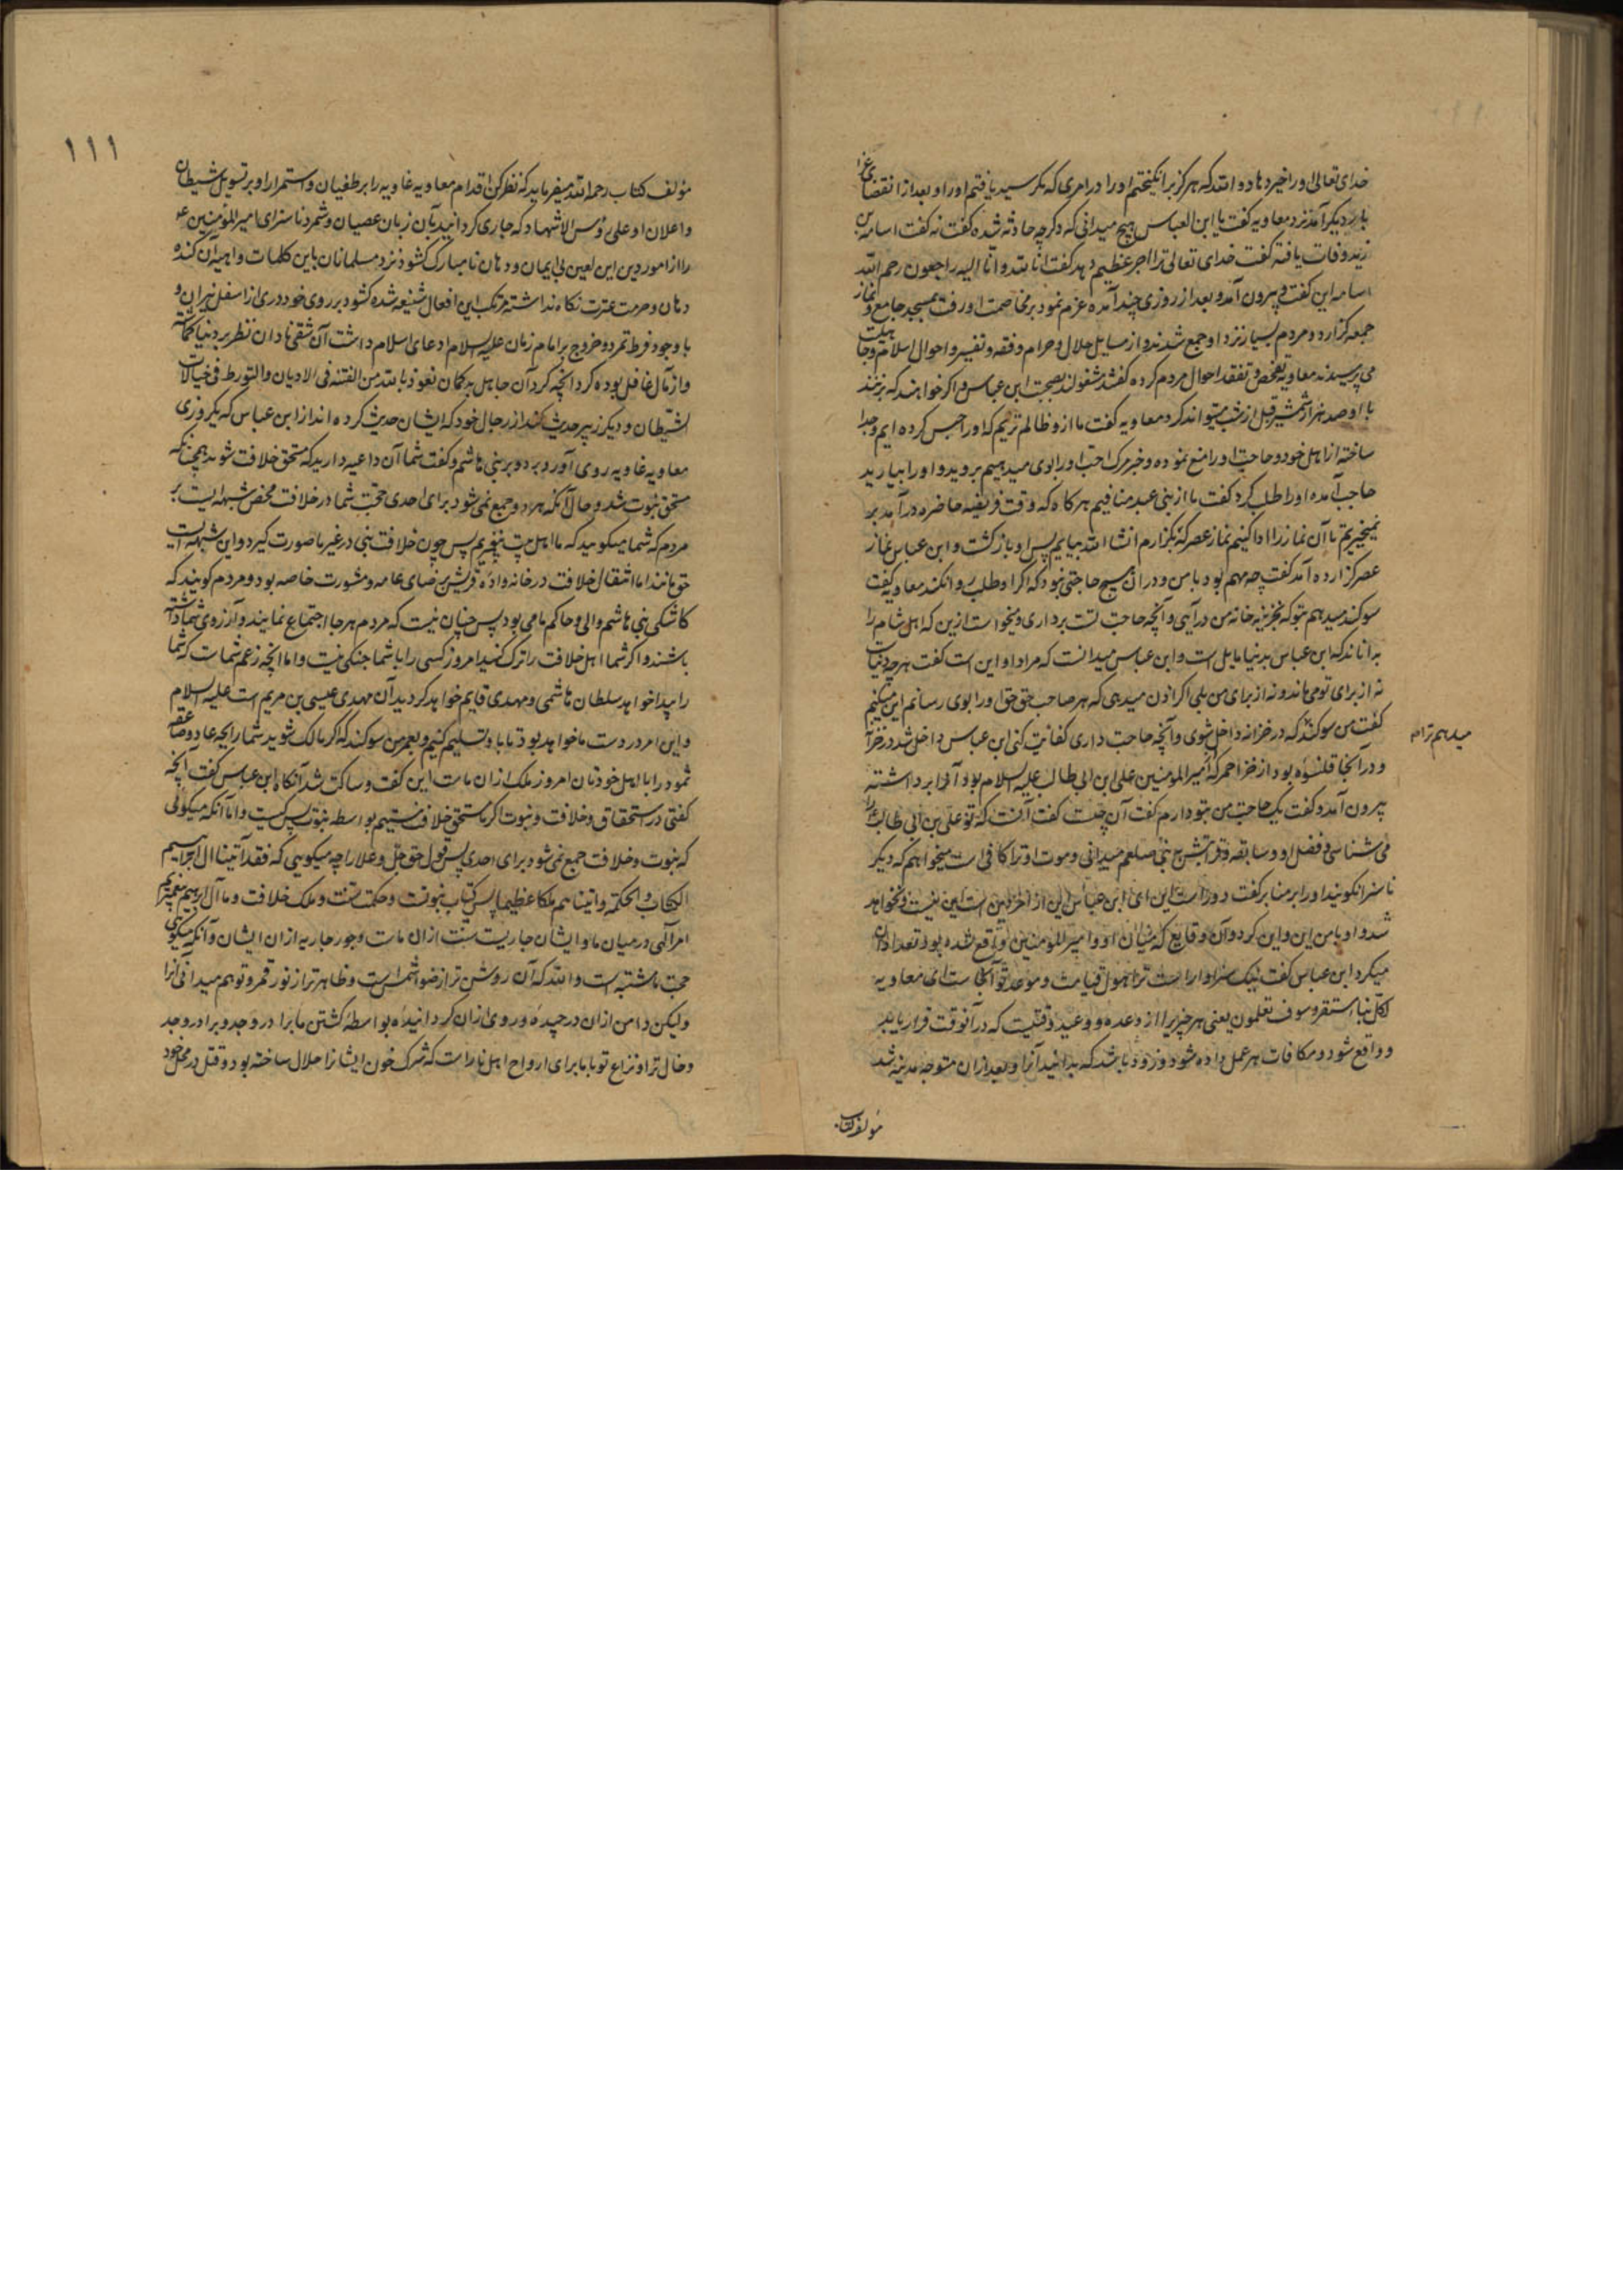 خدای تعالی او را خیر دهاد و الله که هرگز برانگیختم او را در امری که مگر سید یافتم او را و بعد از انقضای عزا
بار دیگر آمد نزد معاویه گفت یا ابن العباس هیچ میدانی که دگر چه حادثه شده گفت نه گفت اسامه بن
زید وفات یافته گفت خدای تعالی ترا اجر عظیم دهد گفت انا لله و انا الیه راجعون رحم الله
اسامه این گفت و بیرون آمد و بعد از روزی چند آمده عزم نمود بر مخاصمت او رفت بمسجد جامع و نماز
جمعه گزارد و مردم بسیار نزد او جمع شدند و از مسایل حلال و حرام و فقه و تفسیر و احوال اسلام و جاهلیت
می پرسیدند معاویه تفحص و تفقد احوال مردم کرده گفتند مشغولند بصحبت ابن عباس و اگر خواهند که بزنند
با او صد هزار شمشیر قبل از شب میتواند کرد معاویه گفت ما از و ظالم تریم که او را حبس کرده ایم و جدا
ساخته از اهل خود و حاجت او را منع نموده و خبر مرگ احب او را بوی میدهیم بروید و او را بیارید
حاجب آمده او را طلب کرد گفت ما از بنی عبد منافیم هر گاه که وقت فریضه حاضره در آمد بر
نمیخیزیم تا آن نماز را ادا کنیم نماز عصر که بگزارم انشا الله بیایم پس او باز گشت و ابن عباس نماز
عصر گزارده آمد گفت چه مهم بود با من و در آن هیچ حاجتی نبود که اگر او طلب روا نکند معاویه گفت
سوگند میدهم بتو که بخزینه خانه من در آیی و آنچه حاجب تست برداری و میخواست ازین که اهل شام را
بداناند که ابن عباس بدنیا مایل است و ابن عباس میدانست که مراد او این است گفت هر چه دنیاست
نه از برای تو می ماند و نه از برای من بلی اگر اذن میدهی که هر صاحب حق حق او را بوی رسانم این میکنم
گفت من سوگند که در خزانه داخل شوی و آنچه حاجب داری کفایت کنی ابن عباس داخل شد در خزانه
میدهم ترا که
و در آنجا قلنسوه بود از خز احمر که امیر المومنین علی ابن ابی طالب علیه السلام بود آنرا برداشته
بیرون آمد و گفت یک حاجب من بتو دارم گفت آن چیست گفت آنست که تو علی بن ابی طالب را
می شناسی و فضل او و سابقه و قرابتش با نبی صلعم میدانی و موت او ترا کافی است میخواهم که دیگر
ناسزا نگویند او را بر منابر گفت دور است این ای ابن عباس این از امر دین است این نیست و نخواهد
شد و او با من این و این کرد و آن وقایع که میان او و امیر المومنین واقع شده بود تعداد آن
میکرد ابن عباس گفت اینک سزاوار است ترا هول قیامت و موعد تو آنجاست ای معاویه
لکل نبا مستقر و سوف تعلمون یعنی هر چیز یرا از وعده و وعید وقتیست که در آنوقت قرار یابد
و واقع شود و مکافات هر عمل داده شود و زود باشد که بدانید آنرا و بعد از آن متوجه مدینه شد
مؤلف کتاب
١١١
مؤلف کتاب رحمه الله میفرماید که نظر کن اقدام معاویه غاویه را بر طغیان و استمرار او بر تسویل شیطان
و اعلان او علی رؤس الاشهاد که جاری گردانید بآن زبان عصیان و شمرد ناسزای امیر المؤمنین ع
را از امور دین این لعین بی ایمان و دهان نامبارک گشود نزد مسلمانان باین کلمات واهیه آن گنده
دهان و حرمت عترت نگاه نداشته مرتکب این افعال شنیعه شده گشود بر روی خود دری از اسفل نیران و
با وجود فرط تمرد و خروج بر امام زمان علیه السلام دعای اسلام داشت آن شقی نادان نظر بر دنیا گماشته
و از مآل غافل بوده کرد آنچه کرد آن جاهل به گمان نعوذ بالله من الفتنه فی الادیان و التورط فی خیالات
الشیطان و دیگر زبیر حدیث کند از رجال خود که ایشان حدیث کرده اند از ابن عباس که یکروزی
معاویه غاویه روی آورد بر بنی هاشم و گفت شما آن داعیه دارید که مستحق خلافت شوید همچنانکه
مستحق نبوت شد و حال آنکه هر دو جمع نمی شود برای احدی حجت شما در خلافت محض شبهه است بر
مردم که شما میگویید که ما اهل بیت پیغمبریم پس چون خلافت نبی در غیر ما صورت گیرد و این شبهه ایست
حق مانند اما انتقال خلافت در خانه واده قریش برضای عامه و مشورت خاصه بود و مردم گویند که
کاشکی بنی هاشم والی و حاکم ما می بود پس چنان نیست که مردم هر جا اجتماع نمایند و آرزوی شما داشته
باشند و اگر شما اهل خلافت را ترک کنید امروز کسی را با شما جنگی نیست و اما آنچه زعم شماست که شما
را پیدا خواهد سلطان هاشمی و مهدی قایم خواهد گردید آن مهدی عیسی بن مریم است علیه السلام
و این امر در دست ما خواهد بود تا باو تسلیم کنیم و بعمر من سوگند که اگر مالک شوید شما رایحه عاد و صاعقه
ثمود را با اهل خودتان امروز ملک از آن ماست این گفت و ساکت شد آنگاه ابن عباس گفت آنچه
گفتی در استحقاق و خلافت و نبوت اگر ما مستحق خلافت نیستیم بواسطه نبوت پس کیست و اما آنکه میگوئی
که نبوت و خلافت جمع نمی شود برای احدی پس قول حق جل و علا را چه میگویی که فقد آتینا آل ابراهیم
الکتاب و الحکمة و آتیناهم ملکا عظیما پس کتاب نبوتست و حکمت سنت و ملک خلافت و ما آل ابراهیم پیغمبریم
امر الهی در میان ما و ایشان جاریست سنت از آن ماست و جور جاریه از آن ایشان و آنکه میگوئی
حجت ما مشتبه است و الله که آن روشن تر از ضوء شمس است و ظاهر تر از نور قمر و تو هم میدانی آنرا
و لیکن دامن از آن در چیده و روی از آن گردانیده بواسطه کشتن ما برادر و جد و برادر و جد
و خال ترا و نزاع تو با ما برای ارواح اهل نار است که شرک خون ایشانرا حلال ساخته بود و قتل در محل خود